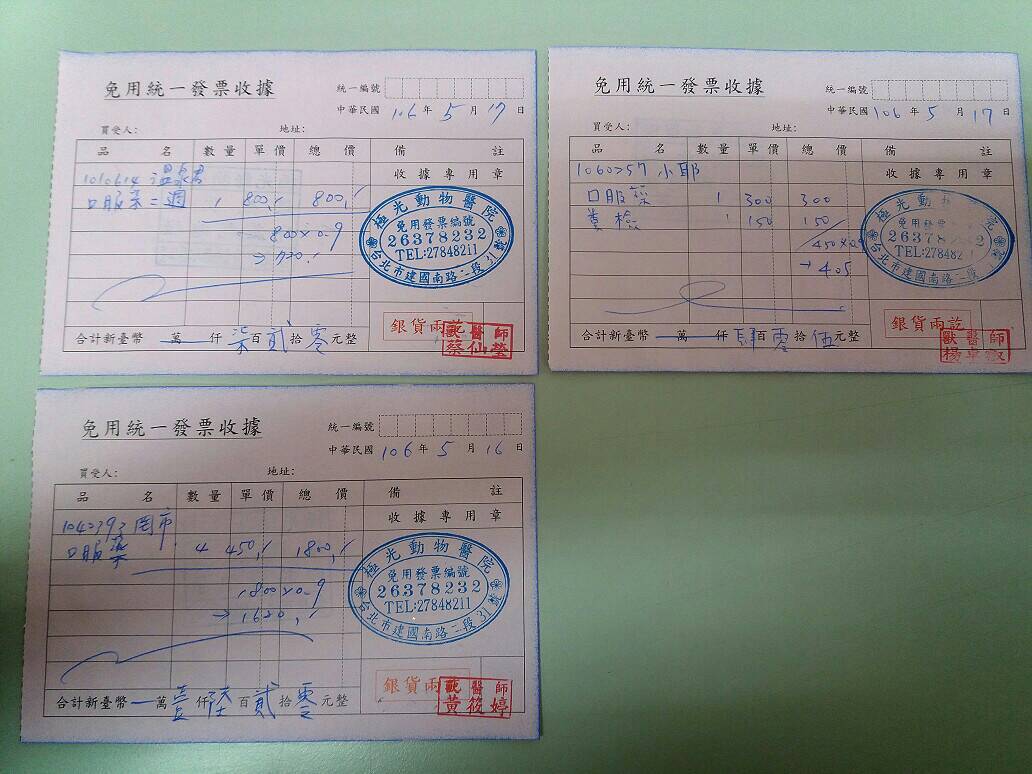 免用統一發票收據
統一編號
中華民國 106 年 5 月 17 日
買受人: 地址:
品 名 數量 單價 總 價 備 註
1010614 溫泉君 收據專用章
口服藥二週 1 800,- 800,-
800x0.9
→720,-
極光動物醫院
免用發票編號
26378232
TEL:27848211
台北市建國南路二段31號
銀貨兩訖
合計新臺幣 萬 仟 柒百貳拾零元整
獸醫師
蔡仙瑩
免用統一發票收據
統一編號
中華民國 106 年 5 月 17 日
買受人: 地址:
品 名 數量 單價 總 價 備 註
1060257 小耶 收據專用章
口服藥 1 300 300
糞檢 1 150 150/
450x0.9
→405
極光動物
免用發票
263782
TEL:278482
台北市建國南路二段31號
銀貨兩訖
合計新臺幣 萬 仟 肆百零拾伍元整
獸醫師
楊
免用統一發票收據
統一編號
中華民國 106 年 5 月 16 日
買受人: 地址:
品 名 數量 單價 總 價 備 註
罔市 收據專用章
口服藥 4 450,- 1800,-
1800x0.9
→1620,-
極光動物醫院
免用發票編號
26378232
TEL:27848211
台北市建國南路二段31號
銀貨兩訖
合計新臺幣 萬壹仟陸百貳拾零元整
獸醫師
黃筱婷